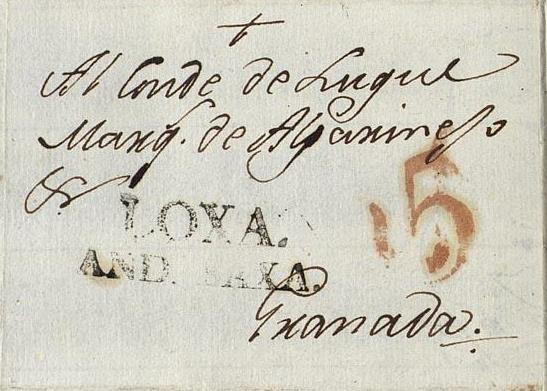 Al Conde de Luque
Marqs. de Algarinejo
&
LOXA.
AND. BAXA.
5
Granada.